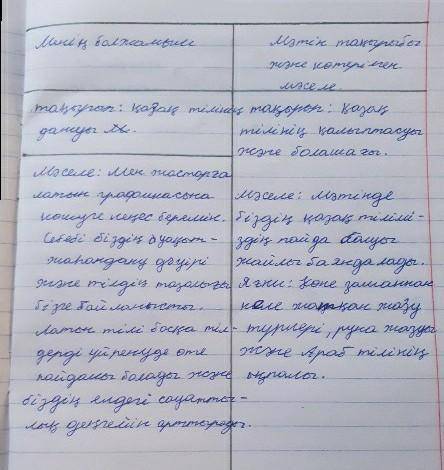 Менің болжамым
Мәтін тақырыбы
және көтерілген
мәселе.
тақырып: қазақ тілінің
дамуы
Мәселе: Мен жастарға
латын графикасына
көшуге кеңес беремін.
Себебі біздің уақыт -
жаһандану дәуірі
және тілдің тазалығы
бізге байланысты.
Латын тілі басқа тіл-
дерді үйренуде өте
пайдалы болады және
біздің елдегі сауатты-
лық деңгейін арттырады.
тақырып: Қазақ
тілінің қалыптасуы
және болашағы.
Мәселе: Мәтінде
біздің қазақ тілімі-
здің пайда болуы
жайлы баяндалады.
Яғни: Көне заманнан
келе жатқан жазу
түрлері, руна жазуы
және Араб тілінің
ықпалы.